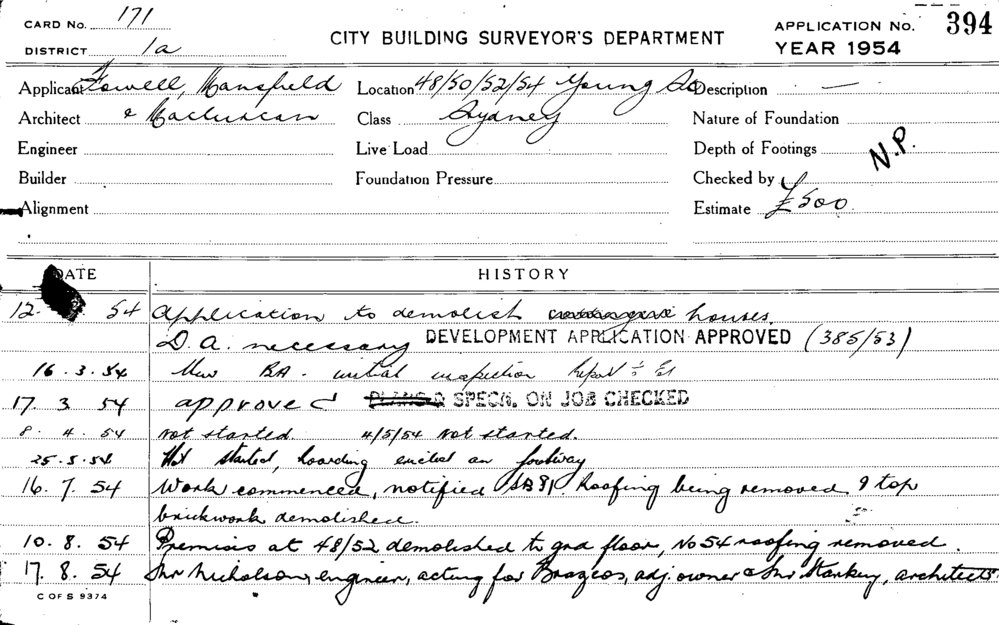 CARD No. 171
DISTRICT 1a
CITY BUILDING SURVEYOR'S DEPARTMENT
APPLICATION No. 394
YEAR 1954
Applicant Fowell, Mansfield Location 48/50/52/54 Young St Description —
Architect & Maclurcan Class Sydney Nature of Foundation
Engineer Live Load Depth of Footings N.P.
Builder Foundation Pressure Checked by
Alignment Estimate £500.
DATE HISTORY
12. 54 Application to demolish houses.
D.A. necessary DEVELOPMENT APPLICATION APPROVED (385/53)
16.3.54 New BA. initial inspection Report
17.3.54 approved PLANS & SPECN. ON JOB CHECKED
8.4.54 not started. 4/5/54 not started.
25.5.54 Not started, hoarding erected on footway
16.7.54 Work commenced, notified Roofing being removed & top
brickwork demolished.
10.8.54 Premises at 48/52 demolished to gnd floor, No 54 roofing removed.
17.8.54 Mr Nicholson, engineer, acting for adj. owner & Mr Starkey, architects
C OF S 9374